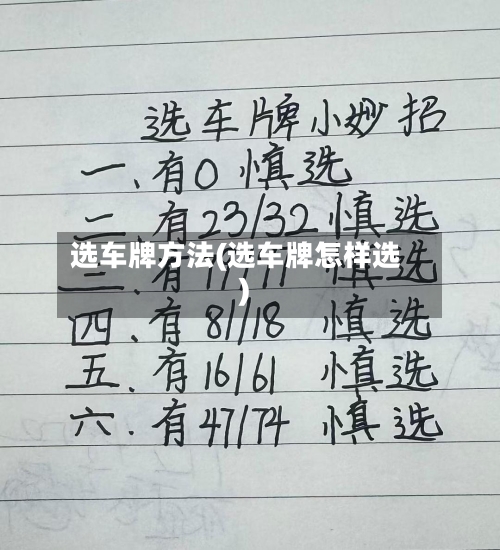 选车牌小妙招
一、有0 慎选
二、有23/32慎选
选车牌方法(选车牌怎样选
)
三、有
四、有81/18 慎选
五、有16/61 慎选
六、有47/74 慎选